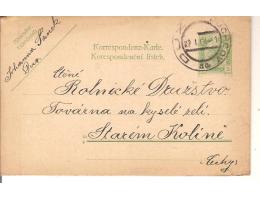 Johanna Sanek
Dux
Correspondenz-Karte.
Korespondenční lístek.
DUX
Ctěné
Rolnické Družstvo.
Továrna na kyselé zelí.
Starém Kolíně
Čechy